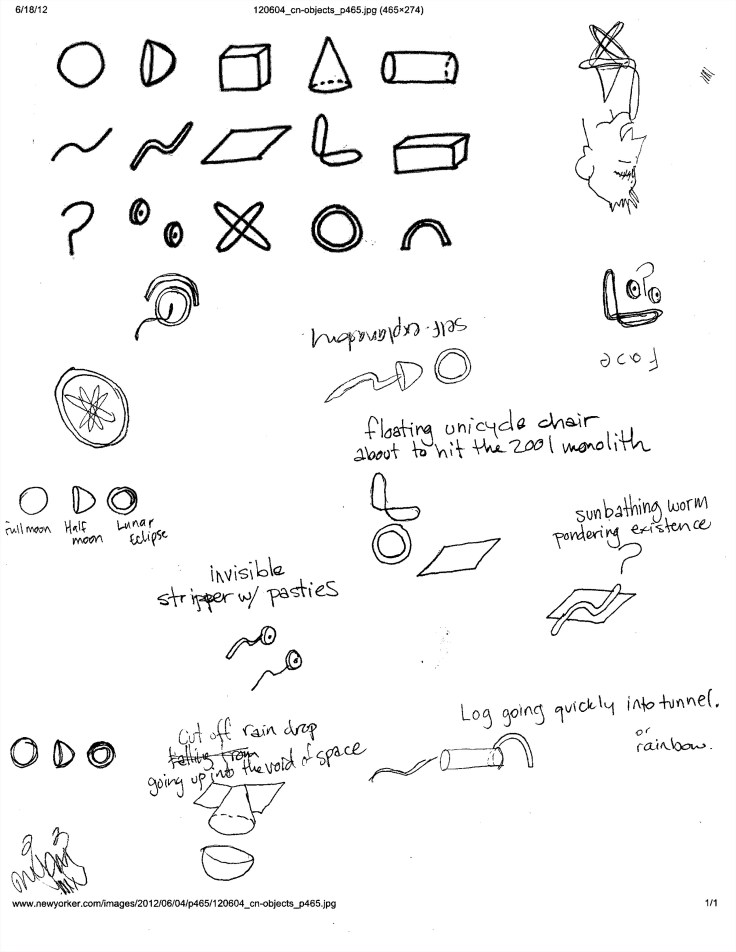 6/18/12
120604_cn-objects_p465.jpg (465×274)
?
?
self-explanatory
face
floating unicycle chair
about to hit the 2001 monolith
Full moon
Half moon
Lunar Eclipse
sunbathing worm
pondering existence
?
invisible
stripper w/ pasties
Cut off rain drop
falling from
going up into the void of space
Log going quickly into tunnel.
or
rainbow.
www.newyorker.com/images/2012/06/04/p465/120604_cn-objects_p465.jpg
1/1